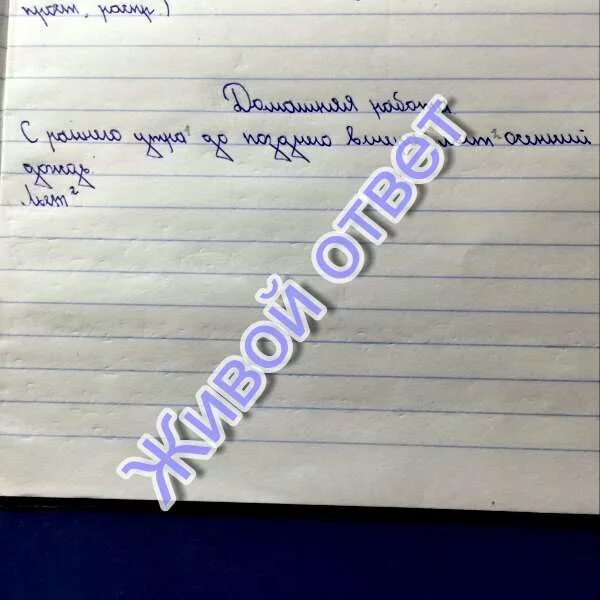 прост, распр.)
Домашняя работа
С раннего утра¹ до позднего льёт² осенний
дождь.
Льёт²
ЖИВОЙ ОТВЕТ